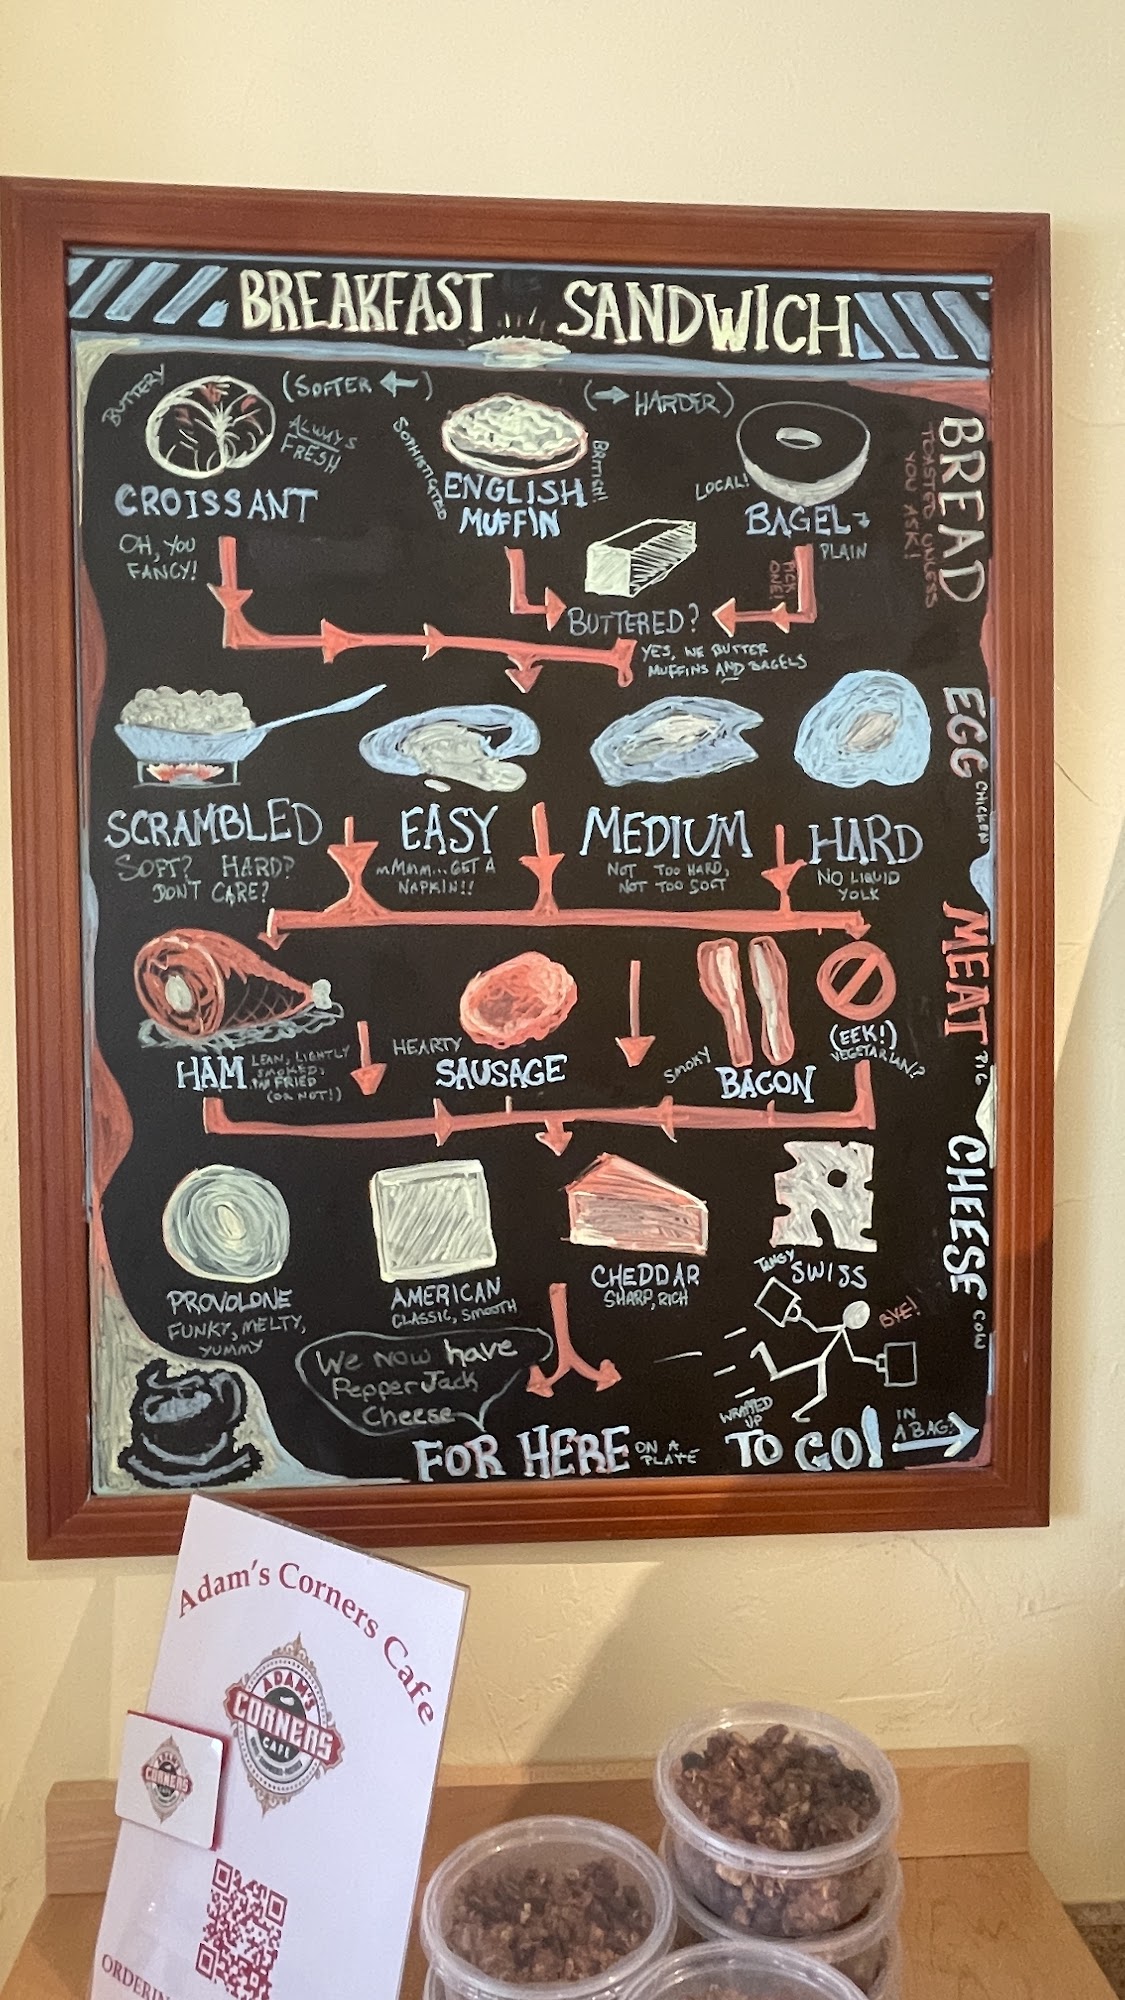 BREAKFAST SANDWICH
BUTTERY
(SOFTER ←)
ALWAYS
FRESH
CROISSANT
OH, YOU
FANCY!
SOPHISTICATED
BRITISH!
ENGLISH
MUFFIN
(→ HARDER)
LOCAL!
BAGEL
PLAIN
PICK
ONE!
BREAD
TOASTED UNLESS
YOU ASK!
BUTTERED?
YES, WE BUTTER
MUFFINS AND BAGELS
EGG
CHICKEN
SCRAMBLED
SOFT? HARD?
DON'T CARE?
EASY
mMmm...GET A
NAPKIN!!
MEDIUM
NOT TOO HARD,
NOT TOO SOFT
HARD
NO LIQUID
YOLK
MEAT
PIG
HAM
LEAN, LIGHTLY
SMOKED,
FRIED
(OR NOT!)
HEARTY
SAUSAGE
SMOKY
BACON
(EEK!)
VEGETARIAN?
CHEESE
COW
PROVOLONE
FUNKY, MELTY,
YUMMY
AMERICAN
CLASSIC, SMOOTH
CHEDDAR
SHARP, RICH
TANGY
SWISS
BYE!
We now have
Pepper Jack
Cheese
FOR HERE
ON A
PLATE
WRAPPED
UP
TO GO!
IN
A BAG!
Adam's Corners Cafe
ADAM'S
CORNERS
CAFE
ADAM'S
CORNERS